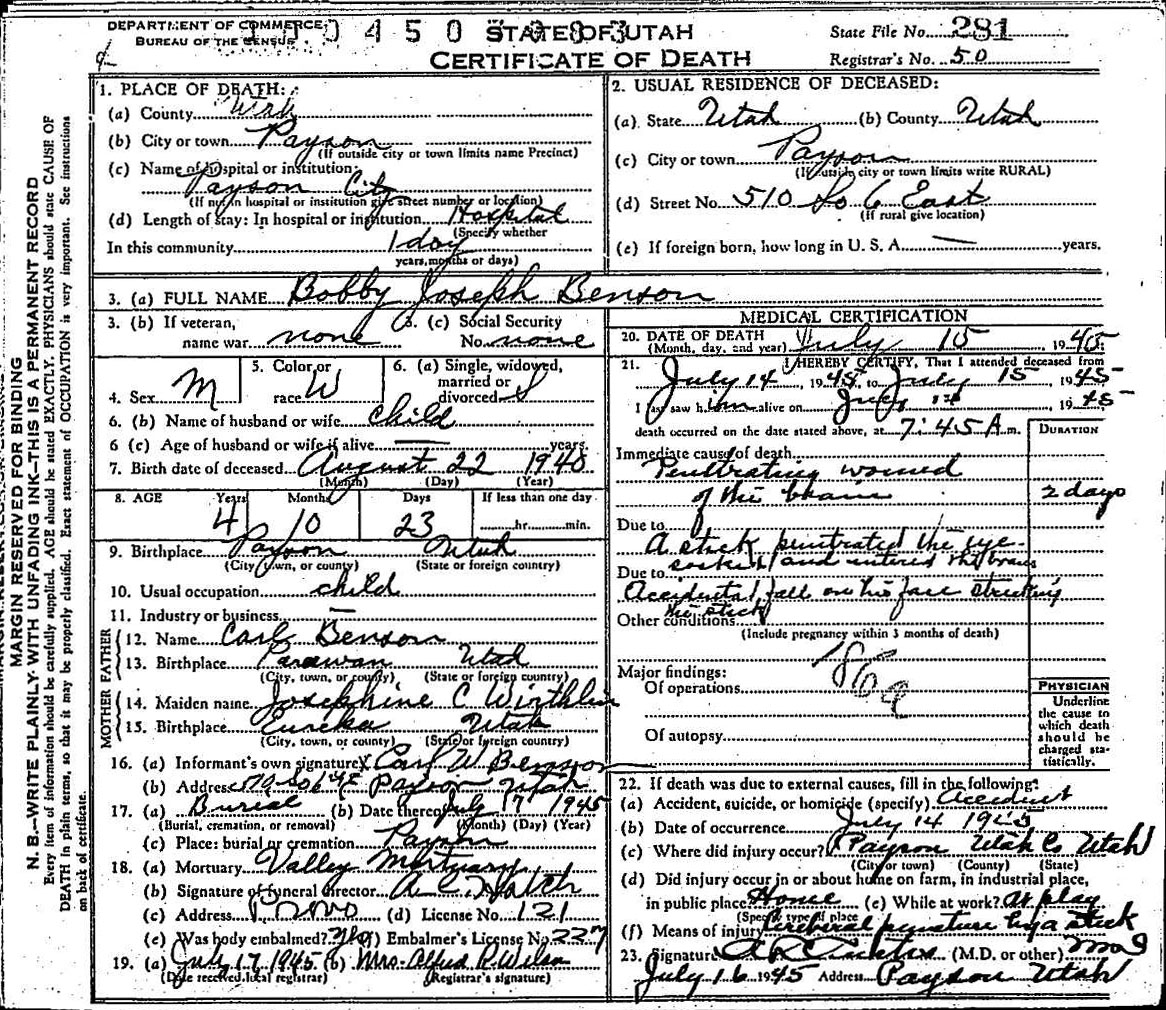 DEPARTMENT OF COMMERCE
BUREAU OF THE CENSUS
STATE OF UTAH
CERTIFICATE OF DEATH
State File No. 281
Registrar's No. 50
MARGIN RESERVED FOR BINDING
N. B.—WRITE PLAINLY WITH UNFADING INK—THIS IS A PERMANENT RECORD
Every item of information should be carefully supplied. AGE should be stated EXACTLY. PHYSICIANS should state CAUSE OF
DEATH in plain terms, so that it may be properly classified. Exact statement of OCCUPATION is very important. See instructions
on back of certificate.
1. PLACE OF DEATH:
(a) County Utah
(b) City or town Payson
(If outside city or town limits name Precinct)
(c) Name of hospital or institution:
Payson City
(If not in hospital or institution give street number or location)
(d) Length of stay: In hospital or institution Hospital
(Specify whether
In this community 1 day
years, months or days)
2. USUAL RESIDENCE OF DECEASED:
(a) State Utah (b) County Utah
(c) City or town Payson
(If outside city or town limits write RURAL)
(d) Street No. 510 So 6 East
(If rural give location)
(e) If foreign born, how long in U. S. A. — years.
3. (a) FULL NAME Bobby Joseph Benson
3. (b) If veteran, name war none
3. (c) Social Security No. none
4. Sex M
5. Color or race W
6. (a) Single, widowed, married or divorced S
6. (b) Name of husband or wife child
6 (c) Age of husband or wife if alive — years
7. Birth date of deceased August 22 1940
(Month) (Day) (Year)
8. AGE Years Months Days If less than one day
4 10 23 hr. min.
9. Birthplace Payson Utah
(City, town, or county) (State or foreign country)
10. Usual occupation child
11. Industry or business —
FATHER
12. Name Carl Benson
13. Birthplace Parowan Utah
(City, town, or county) (State or foreign country)
MOTHER
14. Maiden name Josephine C Wirthlin
15. Birthplace Eureka Utah
(City, town, or county) (State or foreign country)
16. (a) Informant's own signature Carl W Benson
(b) Address Payson Utah
17. (a) Burial (b) Date thereof July 17 1945
(Burial, cremation, or removal) (Month) (Day) (Year)
(c) Place: burial or cremation Payson
18. (a) Mortuary Valley Mortuary
(b) Signature of funeral director A. C. Hatch
(c) Address Provo (d) License No. 121
(e) Was body embalmed? yes (f) Embalmer's License No. 227
19. (a) July 17, 1945 (b) Mrs. Alfred R. Wilson
(Date received local registrar) (Registrar's signature)
MEDICAL CERTIFICATION
20. DATE OF DEATH July 15 1945
(Month, day, and year)
21. I HEREBY CERTIFY, That I attended deceased from
July 14, 1945, to July 15, 1945
I last saw him alive on July 1945
death occurred on the date stated above, at 7:45 A m.
DURATION
Immediate cause of death
Penetrating wound
of the brain 2 days
Due to
A stick penetrated the eye
Due to socket and entered the brain
Accidental fall on his face striking
the stick
Other conditions
(Include pregnancy within 3 months of death)
186a
Major findings:
Of operations
Of autopsy
PHYSICIAN
Underline
the cause to
which death
should be
charged sta-
tistically.
22. If death was due to external causes, fill in the following:
(a) Accident, suicide, or homicide (specify) Accident
(b) Date of occurrence July 14 1945
(c) Where did injury occur? Payson Utah Co Utah
(City or town) (County) (State)
(d) Did injury occur in or about home on farm, in industrial place,
in public place Home (e) While at work? At play
(Specify type of place
(f) Means of injury Cerebral puncture by a stick
23. Signature (M.D. or other)
July 16 1945 Address Payson Utah